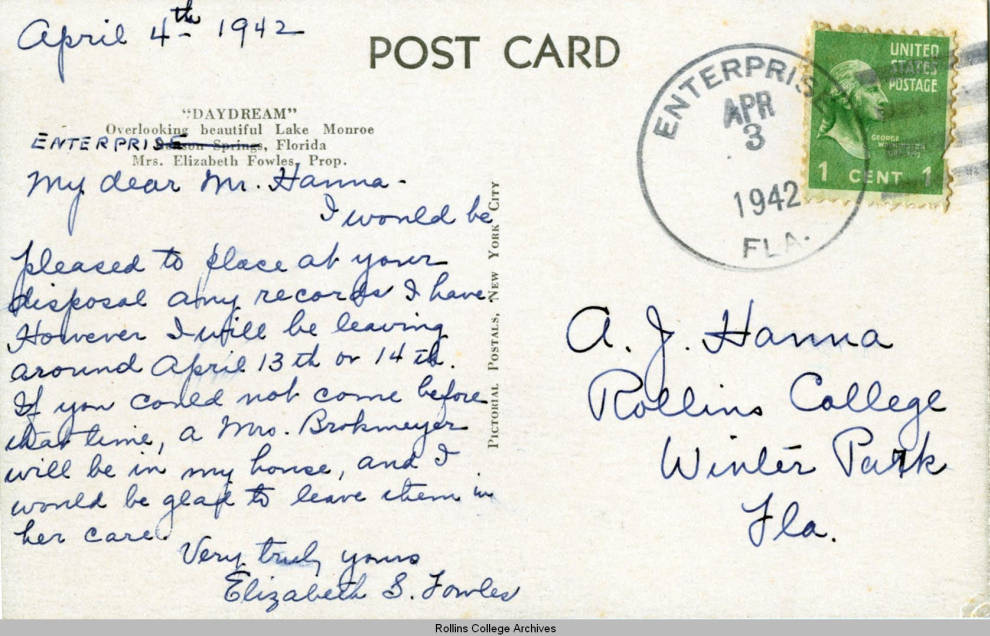 April 4th 1942
POST CARD
"DAYDREAM"
Overlooking beautiful Lake Monroe
ENTERPRISE Springs, Florida
Mrs. Elizabeth Fowles, Prop.
My dear Mr. Hanna-
I would be
pleased to place at your
disposal any records I have.
However I will be leaving
around April 13th or 14th.
If you could not come before
that time, a Mrs. Brokmeyer
will be in my house, and I
would be glad to leave them in
her care.
Very truly yours
Elizabeth S. Fowles
PICTORIAL POSTALS, NEW YORK CITY
ENTERPRISE
APR
3
1942
FLA.
UNITED
STATES
POSTAGE
GEORGE
1 CENT 1
A. J. Hanna
Rollins College
Winter Park
Fla.
Rollins College Archives